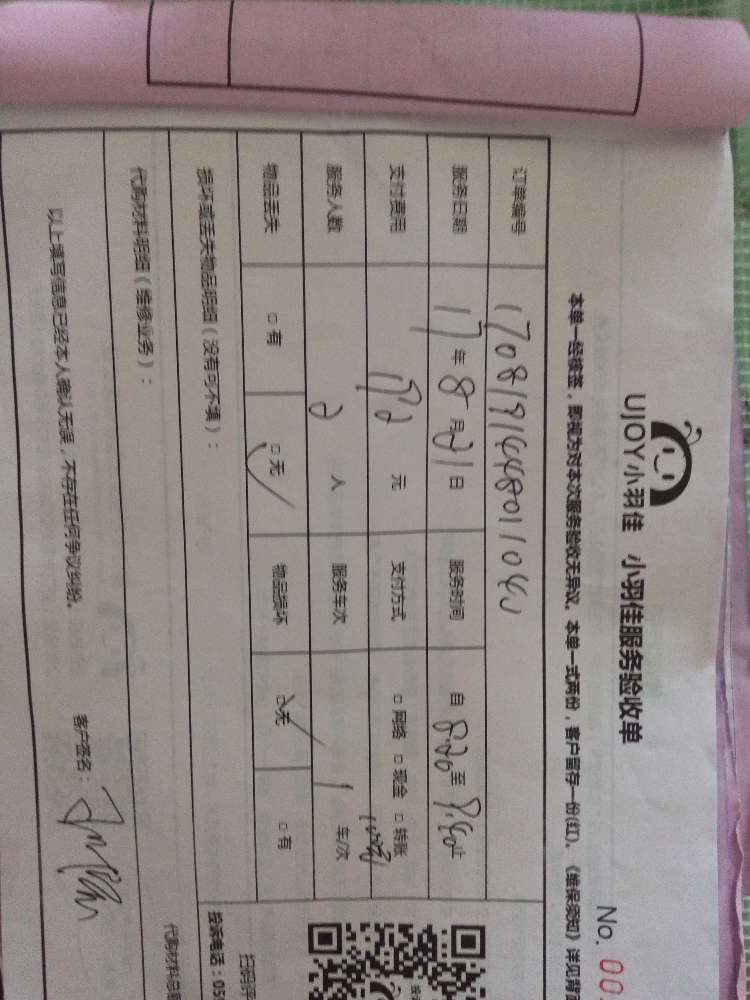 UJOY小羽佳 小羽佳服务验收单
No. 00
本单一经核签，即视为对本次服务验收无异议。本单一式两份，客户留存一份(红)。《维保须知》详见背
订单编号
服务日期 17年8月21日 服务时间 自8:20至9:50止
支付费用 192元 支付方式 □网络 □现金 □转账
服务人数 2人 服务车次 1 车/次
物品丢失 □有 □无 物品损坏 □无 □有
损坏或丢失物品明细（没有可不填）：
代购材料明细（维修业务）：
以上填写信息已经本人确认无误，不存在任何争议纠纷。
客户签名：
扫码评
投诉电话：059
代购材料总